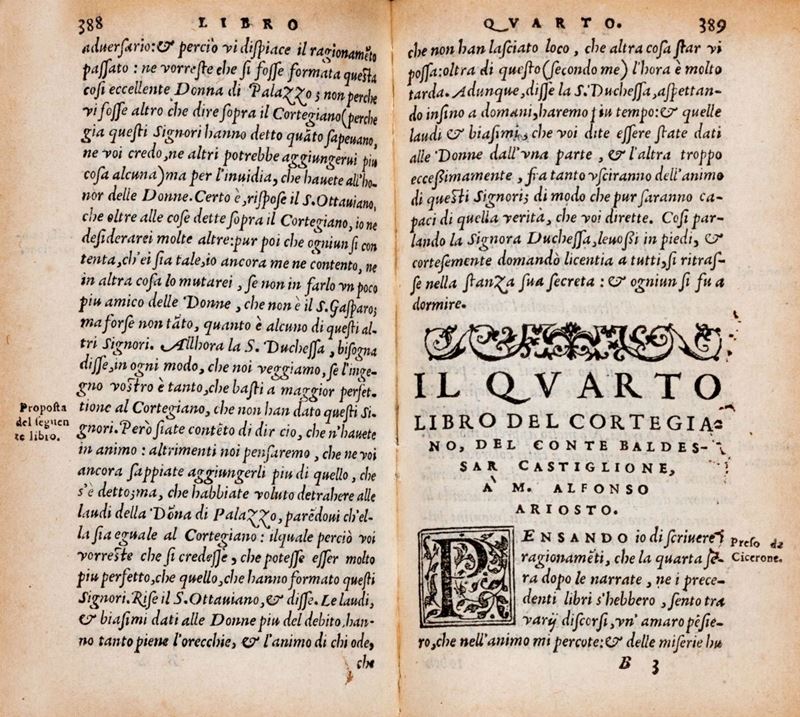 388 LIBRO
aduersario: & perciò vi dispiace il ragionamẽto
passato: ne vorreste che si fosse formata questa
cosi eccellente Donna di Palazzo; non perche
vi fosse altro che dire sopra il Cortegiano (perche
gia questi Signori hanno detto quãto sapeuano,
ne voi credo, ne altri potrebbe aggiungerui piu
cosa alcuna) ma per l'inuidia, che hauete all'ho-
nor delle Donne. Certo è, rispose il S. Ottauiano,
che oltre alle cose dette sopra il Cortegiano, io ne
desiderarei molte altre: pur poi che ogniun si con
tenta, ch'ei sia tale, io ancora me ne contento, ne
in altra cosa lo mutarei, se non in farlo vn poco
piu amico delle Donne, che non è il S. Gasparo;
ma forse non tãto, quanto è alcuno di questi al-
tri Signori. Allhora la S. Duchessa, bisogna
disse, in ogni modo, che noi veggiamo, se l'inge-
gno vostro è tanto, che basti a maggior perfet-
tione al Cortegiano, che non han dato questi Si-
gnori. Però siate contẽto di dir cio, che n'hauete
in animo: altrimenti noi pensaremo, che ne voi
ancora sappiate aggiungerli piu di quello, che
s'è detto; ma, che habbiate voluto detrahere alle
laudi della Dõna di Palazzo, parẽdoui ch'el-
la sia eguale al Cortegiano: ilquale perciò voi
vorreste che si credesse, che potesse esser molto
piu perfetto, che quello, che hanno formato questi
Signori. Rise il S. Ottauiano, & disse. Le laudi,
& biasimi dati alle Donne piu del debito, han-
no tanto piene l'orecchie, & l'animo di chi ode,
che
Proposta
del seguen
te libro.
QVARTO. 389
che non han lasciato loco, che altra cosa star vi
possa: oltra di questo (secondo me) l'hora è molto
tarda. Adunque, disse la S. Duchessa, aspettan-
do insino a domani, haremo piu tempo: & quelle
laudi & biasimi, che voi dite essere state dati
alle Donne dall'vna parte, & l'altra troppo
eccessimamente, fra tanto vsciranno dell'animo
di questi Signori; di modo che pur saranno ca-
paci di quella verità, che voi dirette. Cosi par-
lando la Signora Duchessa, leuossi in piedi, &
cortesemente domandò licentia a tutti, si ritras-
se nella stanza sua secreta: & ogniun si fu a
dormire.
IL QVARTO
LIBRO DEL CORTEGIA-
NO, DEL CONTE BALDES-
SAR CASTIGLIONE,
A M. ALFONSO
ARIOSTO.
PENSANDO io di scriuere i
ragionamẽti, che la quarta se-
ra dopo le narrate, ne i prece-
denti libri s'hebbero, sento tra
varij discorsi, vn' amaro pẽsie-
ro, che nell'animo mi percote: & delle miserie hu
B 3
Preso da
Cicerone.